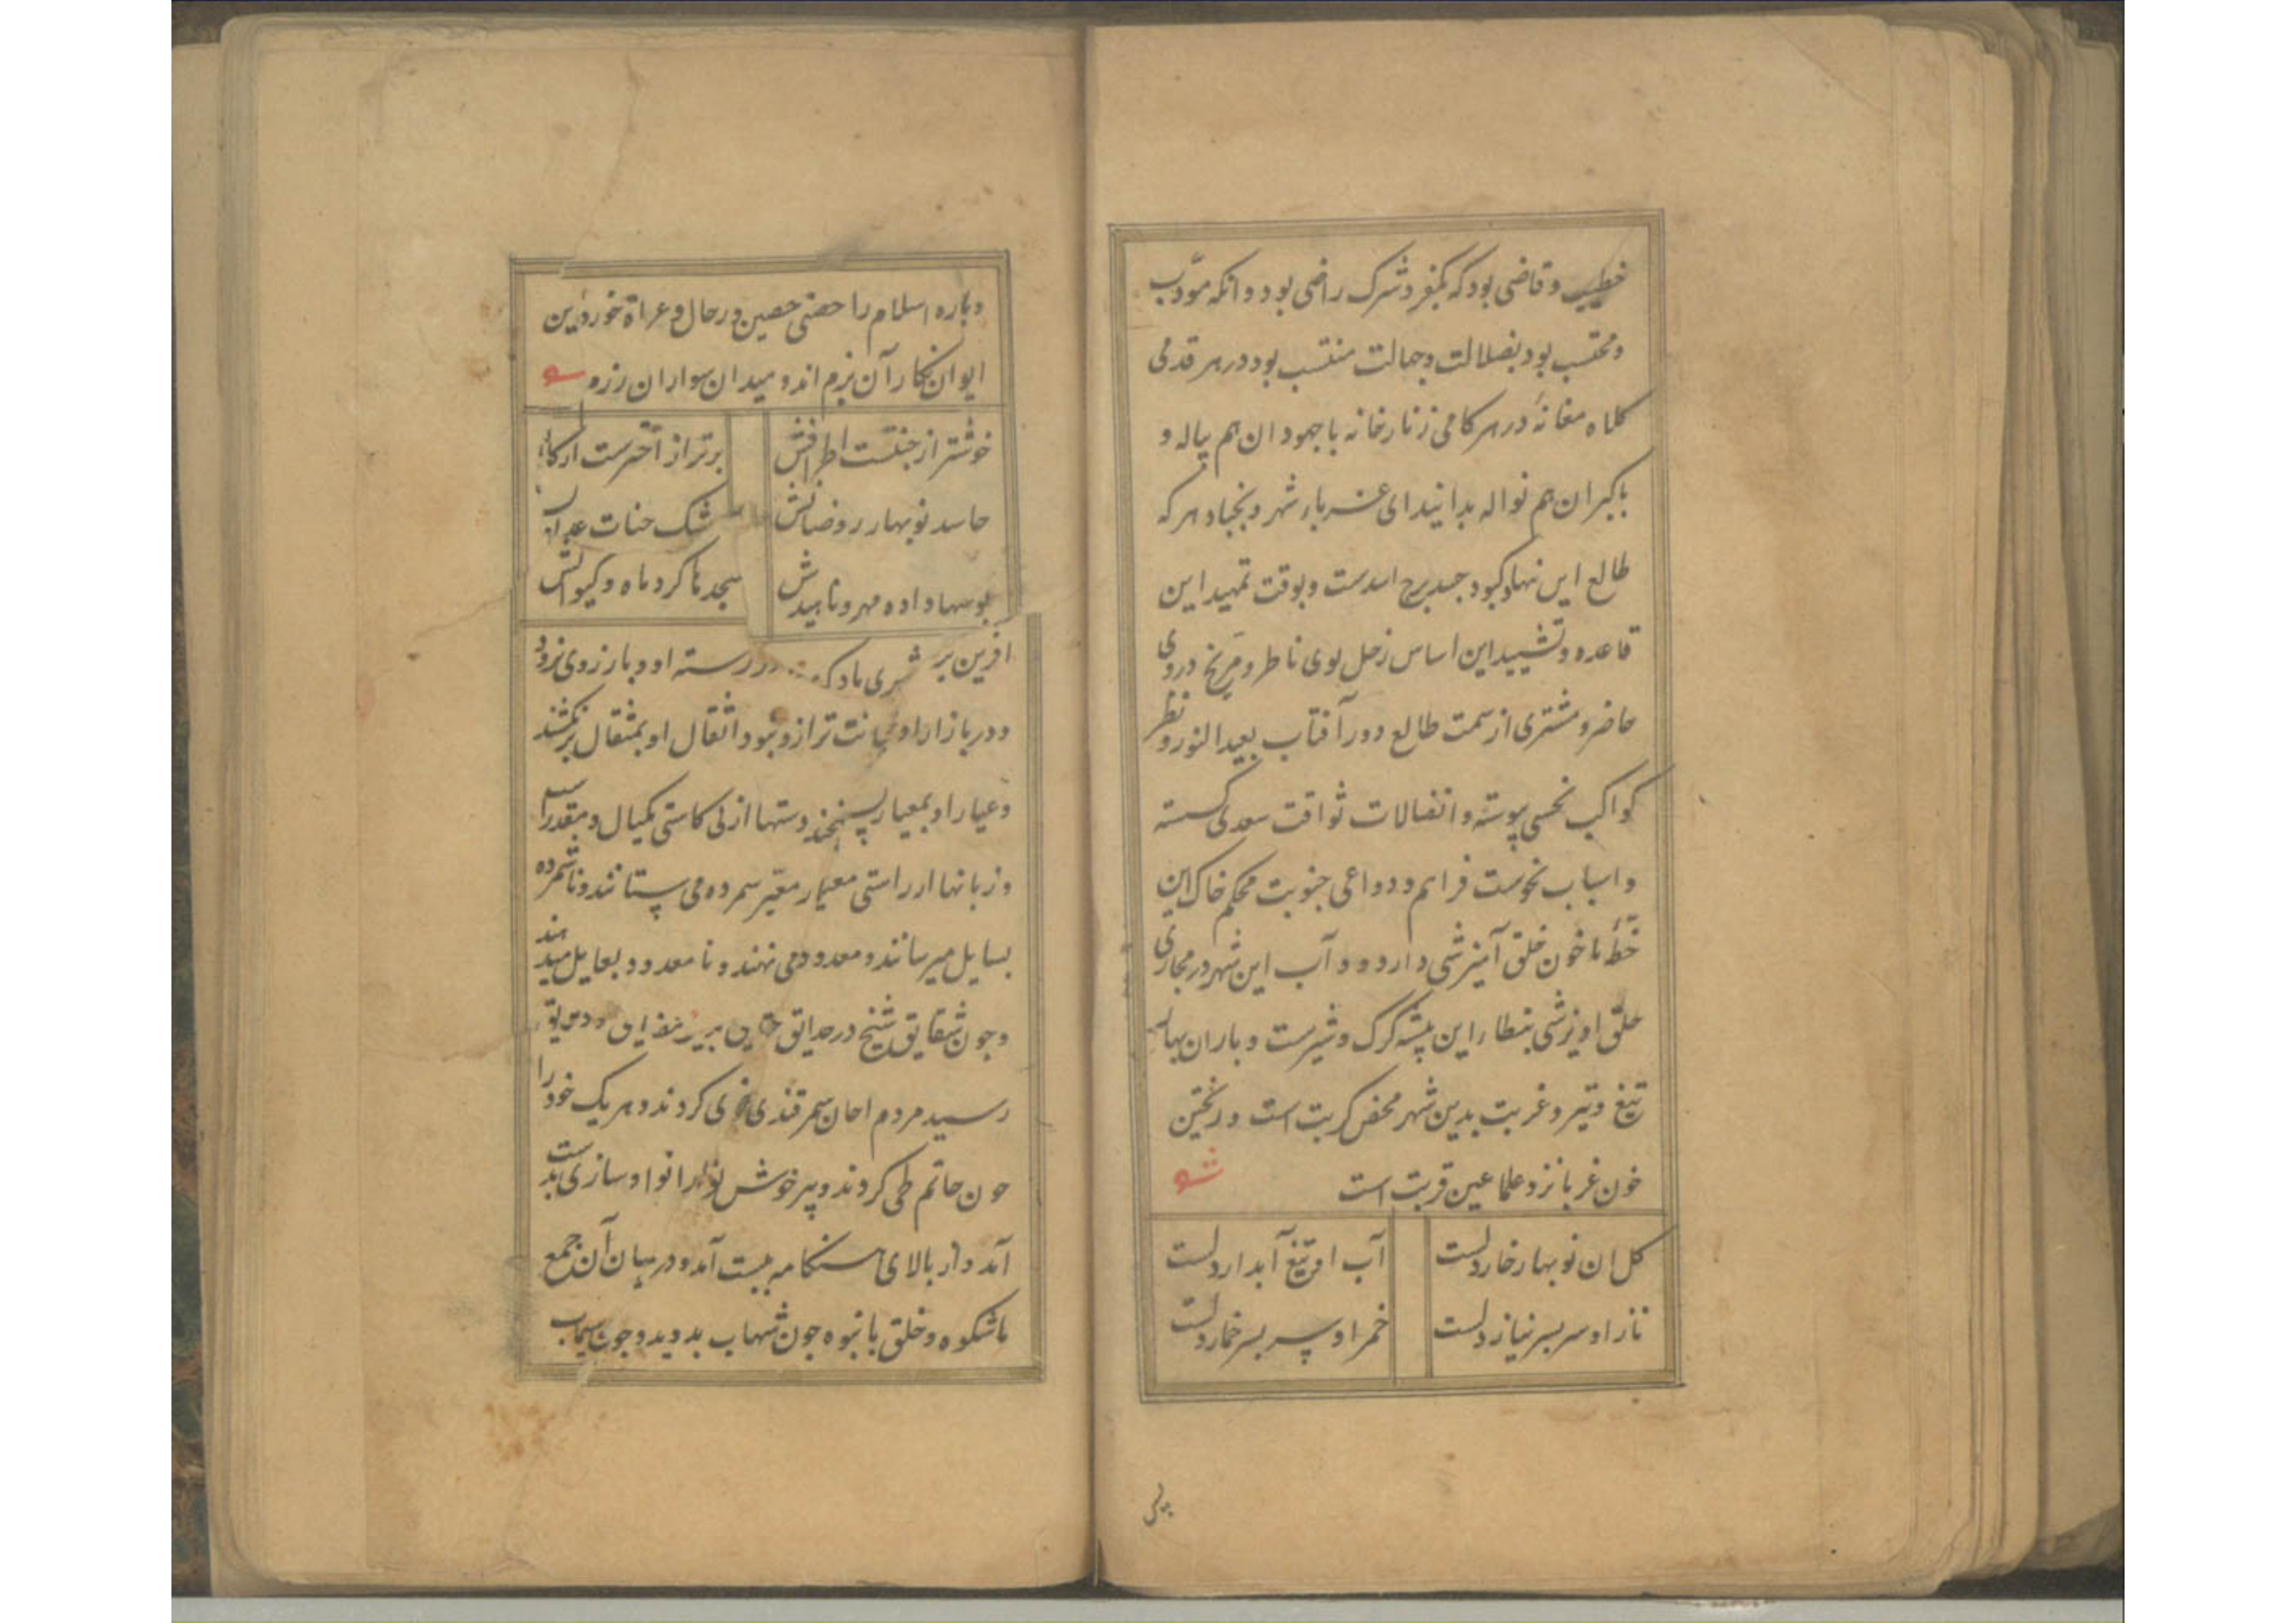 خطیب و قاضی بود که بکفر و شرک راضی بود و انکه مؤدب
و محتسب بود بضلالت و جهالت منتسب بود در هر قدمی
کلاه مغانهٔ در هر کامی زنار خانه با جهودان هم پیاله و
با کبران هم نواله بدانید ای غربا شهر و بخبا و هر که
طالع این نهاد کبود جسد برج اسدست و بوقت تمهید این
قاعده و تشیید این اساس زحل بوی ناظر و مریخ در وی
حاضر و مشتری از سمت طالع دور آفتاب بعید النور و نظر
کواکب نحسی پیوسته و اتفالات ثواقت سعدی کسسته
و اسباب نحوست فراهم و دواعی جنوبت محکم خاک این
خطّه با خون خلق آمیزشی دارد و آب این شهر در مجاری
حلق اویزشی بنطار این پشته کرک و شیرست و باران بهار
تیغ و تیر و غربت بدین شهر محض کربت است و ریختن
خون غربا نزد علما عین قربت است شو
کل ان نوبهار خار دلست آب او تیغ آبدار دلست
ناز او سر بسر نیاز دلست خمر او سر بسر خمار دلست
و باره اسلام را حصنی حصین و رحال و عراة خود زین
ایوان نکار آن بزم اند و میدان سواران رزم
خوشتر از جنتست اطرافش برتر از اخترست ارکانش
حاسد نوبهار روضاتش شک جنات عدن
بوسها داده مهر و ناهیدش سجدها کرد ماه و کیوانش
افرین بر شهری باد که در رسته او و بازروی نرود
و در بازار او خیانت ترازو نبود اثقال او بمثقال برکشند
و عیار او بمعیار بسنجند و ستها از نی کاستی کمیال و مقدار
و زبانها از راستی معیار معیّر سمرده می ستانند و ناشمرده
بسایل میرسانند و معدود می نهند و نا معدود بعایل میدهند
و جون شقایق شیخ در حدایق
رسید مردم احان سمرقندی کردند و هریک خود را
جون حاتم طی کردند و پیر خوش نوا را نوا و سازی بدست
آمد و از بالای هنکامه ببست آمد و در میان آن جمع
باشکوه و خلق بانبوه جون شهاب بدوید و جون سیماب